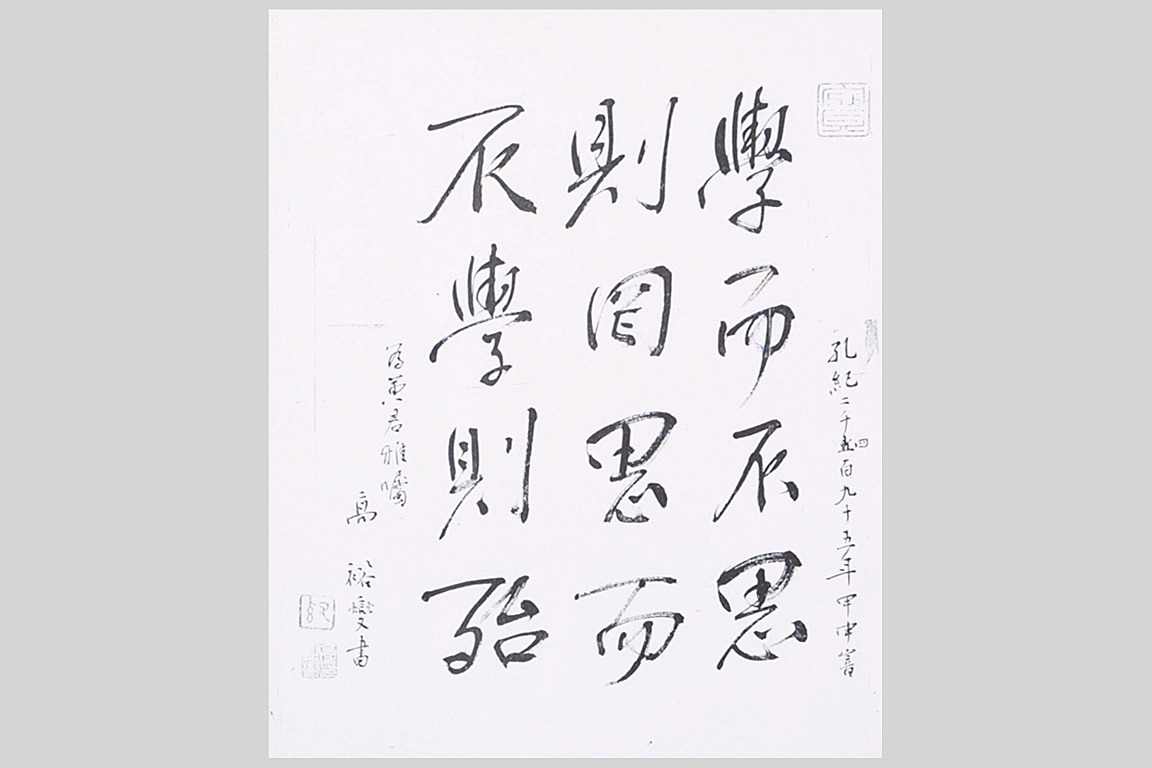 孔紀二千四百九十五年甲申
學而不思
則罔思而
不學則殆
為君雅囑
高裕燮書